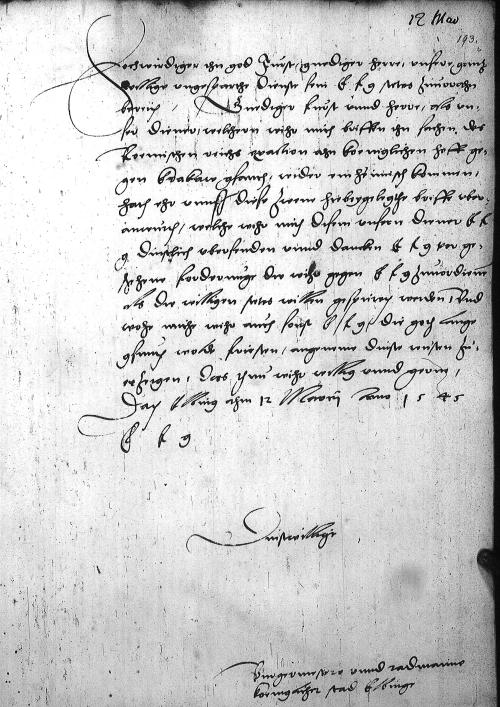 12 Mar
193.
Hochwirdiger ihn god Furst, gnediger herre, unsere gantz
willige ungesparthe dienste sein E F G stetes zuuorahn
bereith, Gnediger Furst unnd herre, als un-
ser diener, welchern wihr mith briffen ihn sachen, des
Roemischen reichs exaction ahn koeniglichen hoff ge-
gen krakaw gesanth, wider einheimisch kommen,
hath ehr unss diese zwene hiebeygelegthe briffe uber-
anthwuth, welche wihr mith disem unsern diener E F
G dinstlich ubersenden unnd dancken E F G vor ge-
schene forderunge die wihr gegen E F G zuuordienen
als die willigen stetes willen gespuereth werden, Und
wohr mithe wihr auch sonst E F G, die goth lange
gesunth wolde fristen, angeneme dinste wusten zu-
erzeigen, das thun wihr willig unnd gern,
Dath Elbing ahm 12 Martii Anno 1545
E F G
Dinstwillige
Burgermeistere unnd radmanne
koenniglicher stad Elbinge